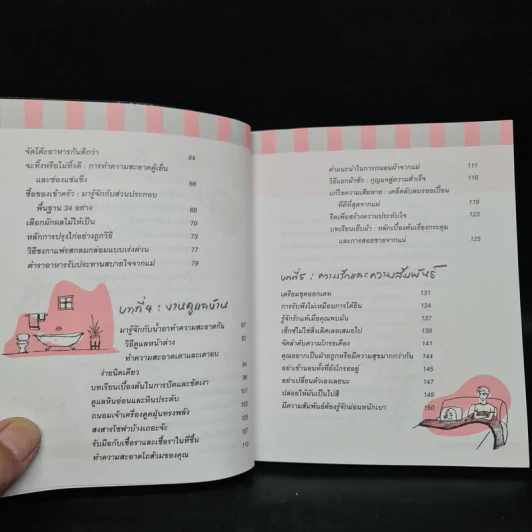 จัดโต๊ะอาหารกันดีกว่า 64
จะทิ้งหรือไม่ทิ้งดี : การทำความสะอาดตู้เย็น
และช่องแช่แข็ง 66
ซื้อของเข้าครัว : มารู้จักกับส่วนประกอบ
พื้นฐาน 34 อย่าง 68
เลือกผักผลไม้ให้เป็น 70
หลักการปรุงไก่อย่างถูกวิธี 73
วิธีชงกาแฟรสกลมกล่อมแบบเร่งด่วน 77
ตำราอาหารรับประทานสบายใจจากแม่ 79
บทที่ 4 : งานดูแลบ้าน
มารู้จักกับน้ำยาทำความสะอาดกัน 87
วิธีดูแลหน้าต่าง 92
ทำความสะอาดเตาและเตาอบ
ง่ายนิดเดียว 94
บทเรียนเบื้องต้นในการปัดและขัดเงา
ดูแลหินอ่อนและหินประดับ
ถนอมเจ้าเครื่องดูดฝุ่นทรงพลัง
สงสารโซฟาบ้างเถอะจ๊ะ
รับมือกับเชื้อราและเชื้อราในที่ชื้น
ทำความสะอาดโถส้วมของคุณ 110
คำแนะนำในการถนอมผ้าจากแม่ 111
วิธีแยกผ้าซัก : กุญแจสู่ความสำเร็จ 116
แก้ไขความเสียหาย : เคล็ดลับลบรอยเปื้อน
ที่ดีที่สุดจากแม่ 119
รีดเพื่อสร้างความประทับใจ 123
บทเรียนเย็บผ้า : หลักเบื้องต้นเรื่องกระดุม
และการสอยชายจากแม่ 125
บทที่ 5 : ความรักและความสัมพันธ์
เตรียมชุดออกเดท 131
การรับฟังไม่เหมือนการได้ยิน 134
รู้จักรักแท้เมื่อคุณพบมัน 137
เซ็กซ์ไม่ใช่สิ่งเลิศเลอเสมอไป 138
จัดลำดับความโกรธเคือง 141
คุณอยากเป็นฝ่ายถูกหรือมีความสุขมากกว่ากัน 144
อย่าเข้านอนทั้งที่ยังโกรธอยู่ 145
อย่าเปลี่ยนตัวเองเลยนะ 147
ปล่อยให้มันเป็นไปสิ 149
มีความสัมพันธ์ต้องรู้จักผ่อนหนักเบา 150